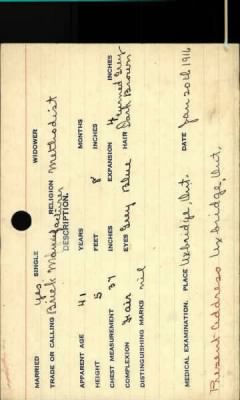 MARRIED yes SINGLE WIDOWER
TRADE OR CALLING Brick Manufacturer RELIGION Methodist
DESCRIPTION.
APPARENT AGE 41 YEARS MONTHS
HEIGHT 5 FEET 8 INCHES
CHEST MEASUREMENT 37 INCHES EXPANSION 4 INCHES
COMPLEXION Fair EYES Grey Blue HAIR Dark Brown turned Grey
DISTINGUISHING MARKS nil
MEDICAL EXAMINATION. PLACE Uxbridge, Ont. DATE Jan 20th 1916
Present Address Uxbridge, Ont.